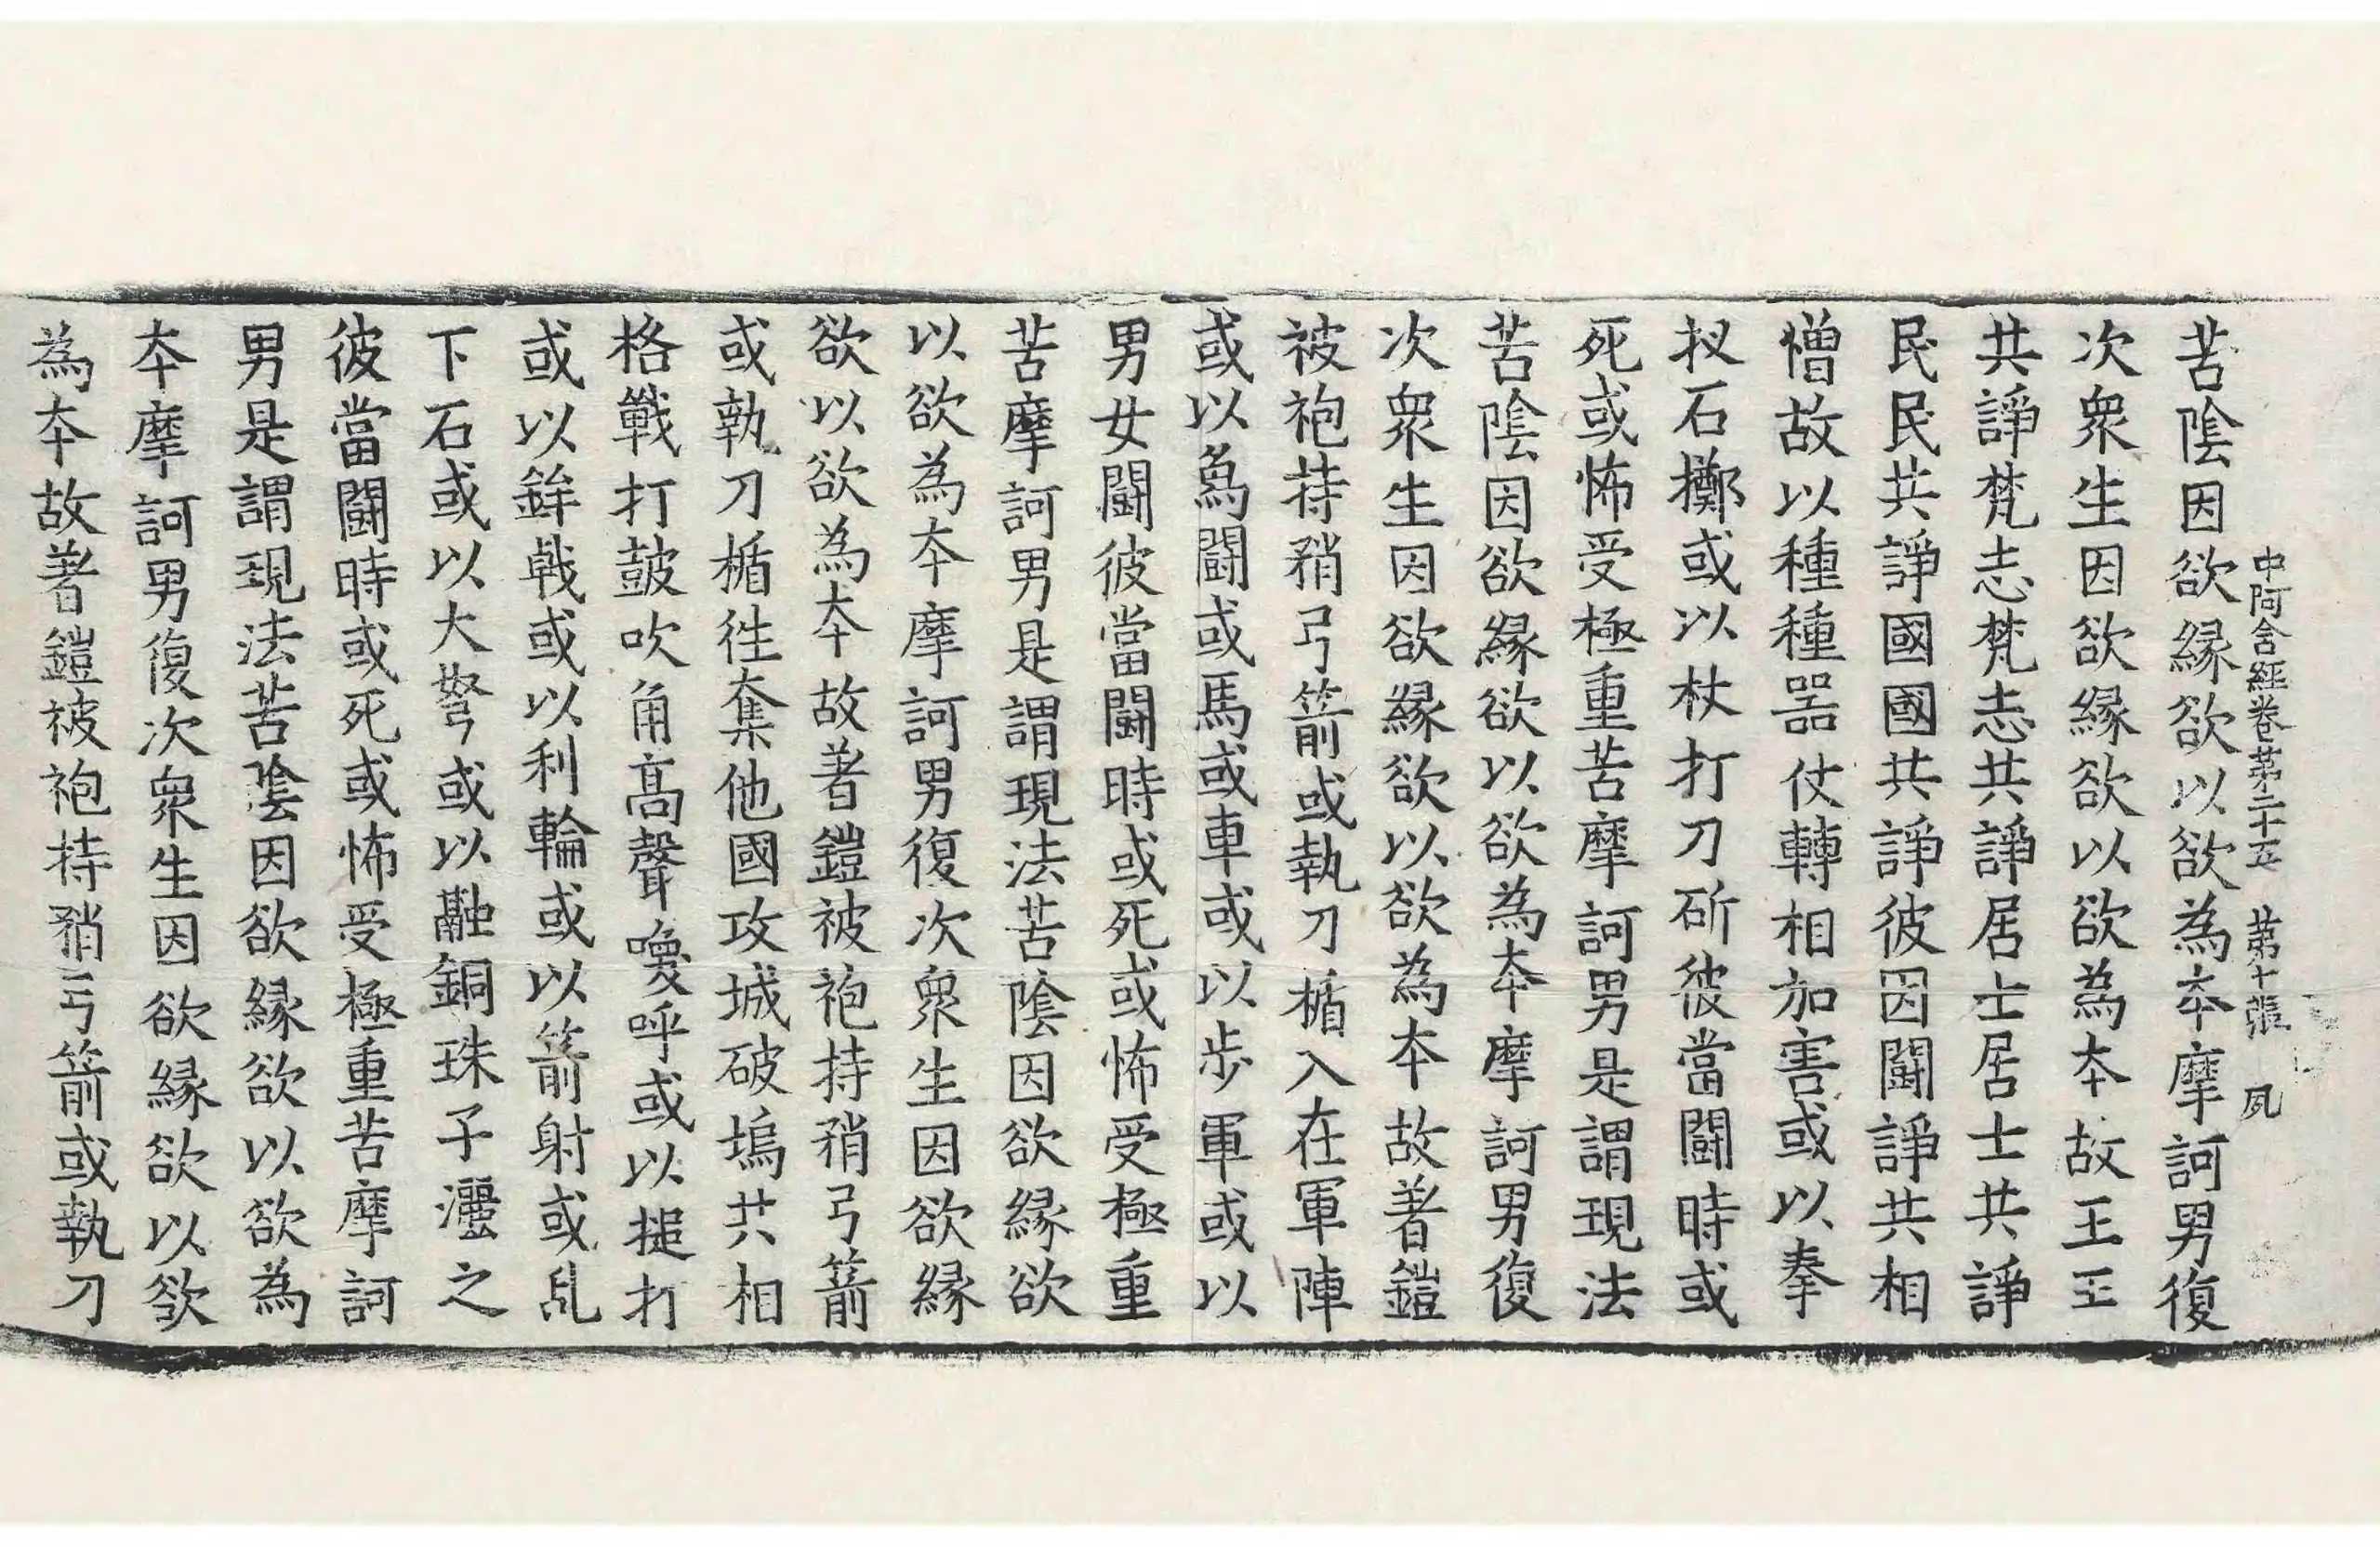 中阿含經卷第二十五 第十張 夙
苦陰因欲縁欲以欲為夲摩訶男復
次衆生因欲縁欲以欲為夲故王王
共諍梵志梵志共諍居士居士共諍
民民共諍國國共諍彼因闘諍共相
憎故以種種器仗轉相加害或以拳
扠石擲或以杖打刀斫彼當闘時或
死或怖受極重苦摩訶男是謂現法
苦陰因欲縁欲以欲為夲摩訶男復
次衆生因欲縁欲以欲為夲故著鎧
被袍持矟弓箭或執刀楯入在軍陣
或以象闘或馬或車或以步軍或以
男女闘彼當闘時或死或怖受極重
苦摩訶男是謂現法苦陰因欲縁欲
以欲為夲摩訶男復次衆生因欲縁
欲以欲為夲故著鎧被袍持矟弓箭
或執刀楯徃奪他國攻城破塢共相
格戰打鼓吹角髙聲喚呼或以搥打
或以鉾戟或以利輪或以箭射或乱
下石或以大弩或以融銅珠子灑之
彼當闘時或死或怖受極重苦摩訶
男是謂現法苦陰因欲縁欲以欲為
夲摩訶男復次衆生因欲縁欲以欲
為夲故著鎧被袍持矟弓箭或執刀